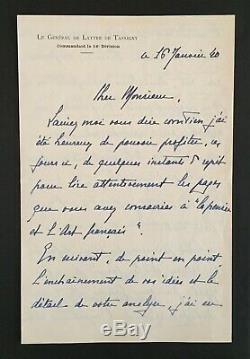 LE GÉNÉRAL DE LATTRE DE TASSIGNY
Commandant la 14e Division
le 16 Janvier 40
Cher Monsieur,
Laissez moi vous dire combien j'ai
été heureux de pouvoir profiter, ces
jours ci, de quelques instants d'esprit
pour lire attentivement les pages
que vous avez consacrées à "la pensée
et l'Art français".
En suivant, de point en point
l'enchaînement de vos idées et le
détail de votre analyse, j'ai eu